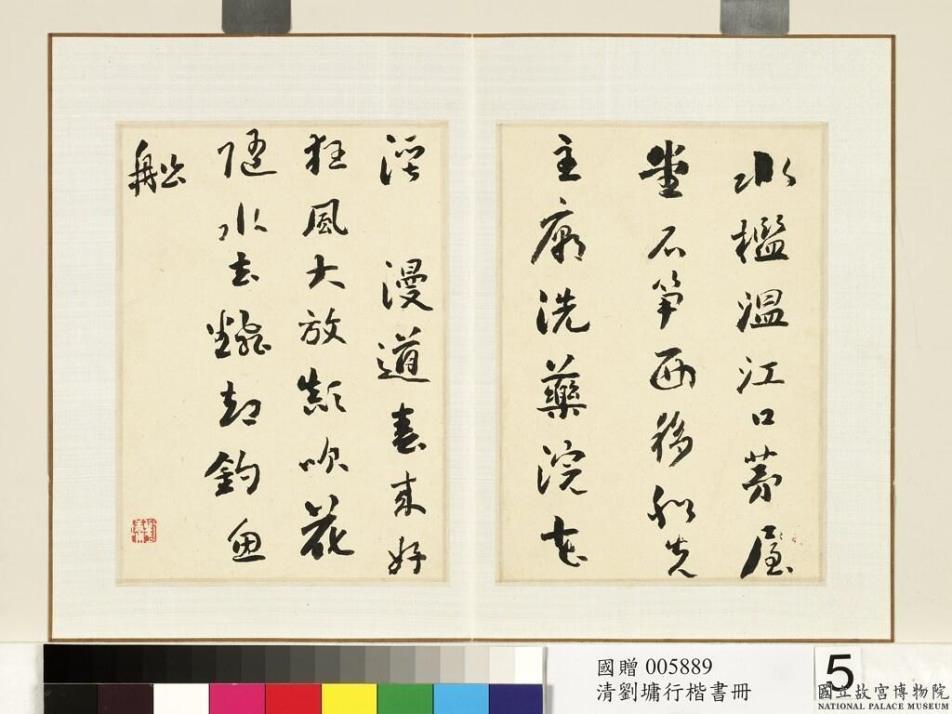 水檻溫江口茅屋
堂石笋西移船先
主廟洗藥浣花
溪 漫道春來好
狂風大放顛吹花
隨水去飜却釣魚
舩
國贈 005889
清劉墉行楷書冊
5
國立故宮博物院
NATIONAL PALACE MUSEUM